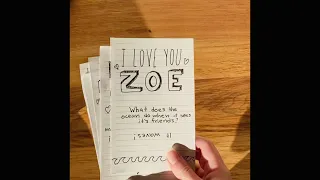 I LOVE YOU
ZOE
What does the
ocean do when it sees
it's friends?
It waves!